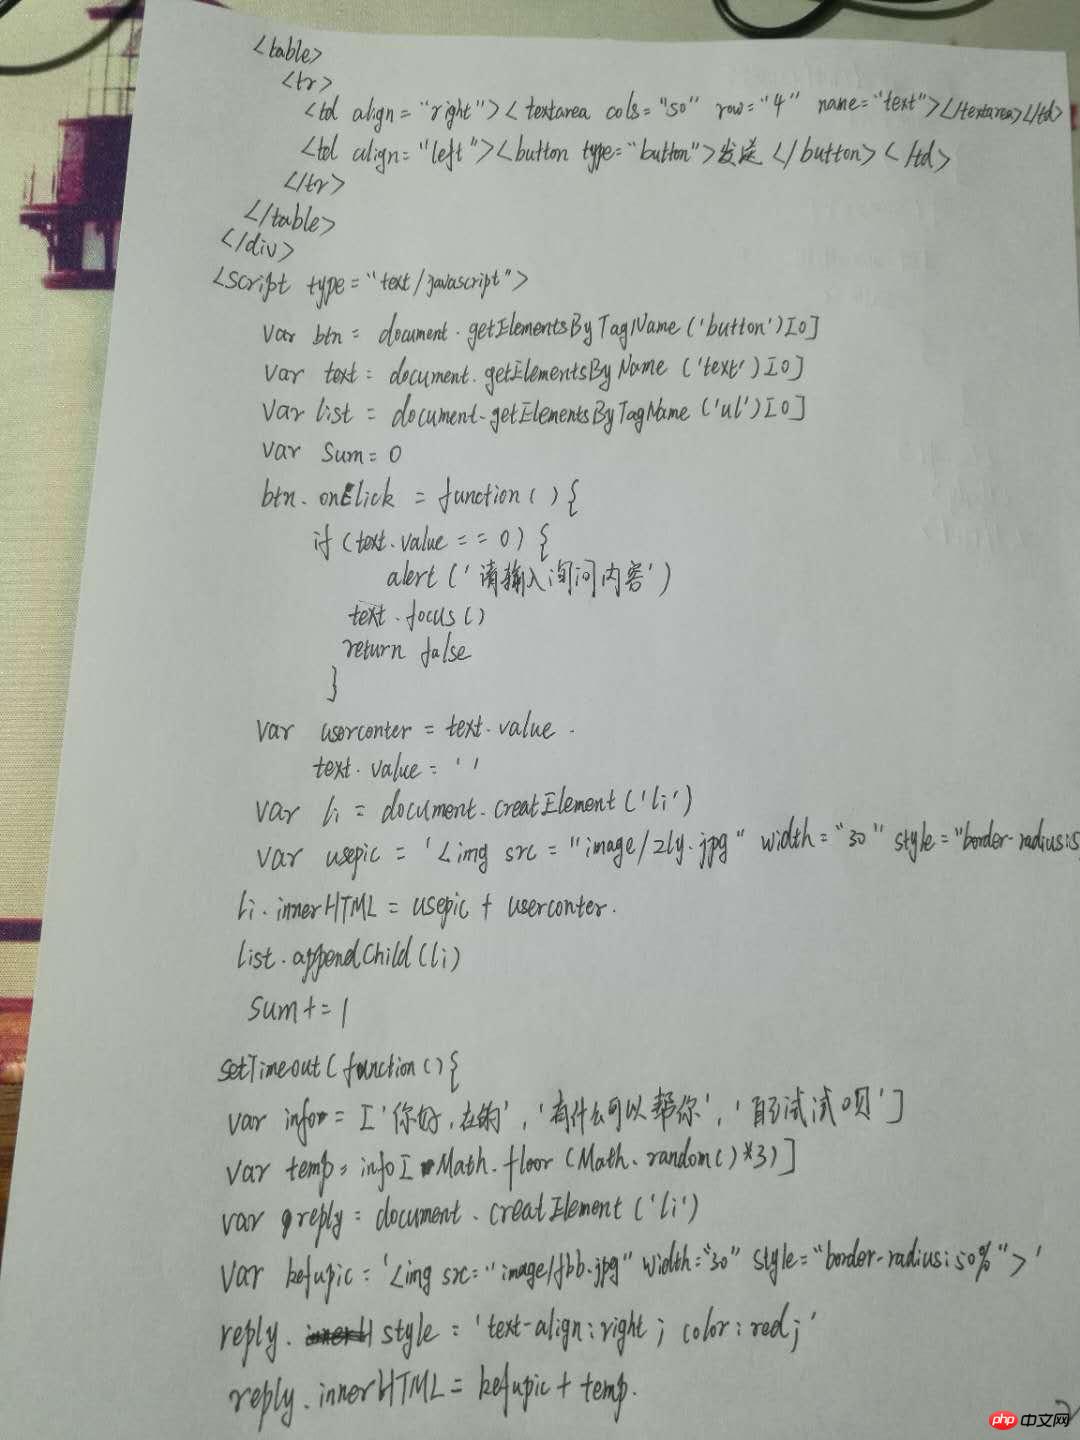 <table>
<tr>
<td align="right"><textarea cols="50" row="4" name="text"></textarea></td>
<td align="left"><button type="button">发送</button></td>
</tr>
</table>
</div>
<script type="text/javascript">
var btn = document.getElementsByTagName('button')[0]
var text = document.getElementsByName('text')[0]
var list = document.getElementsByTagName('ul')[0]
var sum = 0
btn.onclick = function(){
if(text.value == 0){
alert('请输入询问内容')
text.focus()
return false
}
var userconter = text.value.
text.value = ''
var li = document.creatElement('li')
var usepic = '<img src="image/zly.jpg" width="30" style="border-radius:5
li.innerHTML = usepic + userconter.
list.appendChild(li)
sum += 1
setTimeout(function(){
var info = ['你好,在的','有什么可以帮你','自己试试呗']
var temp = info[Math.floor(Math.random()*3)]
var reply = document.creatElement('li')
var kefupic = '<img src="image/fbb.jpg" width="30" style="border-radius:50%">'
reply.style = 'text-align:right; color:red;'
reply.innerHTML = kefupic + temp.
php中文网